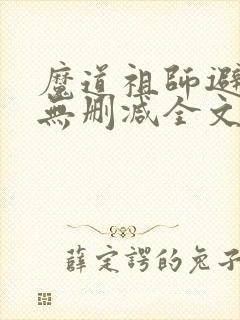 魔道祖師避
無删减全文
薛定諤的兔子